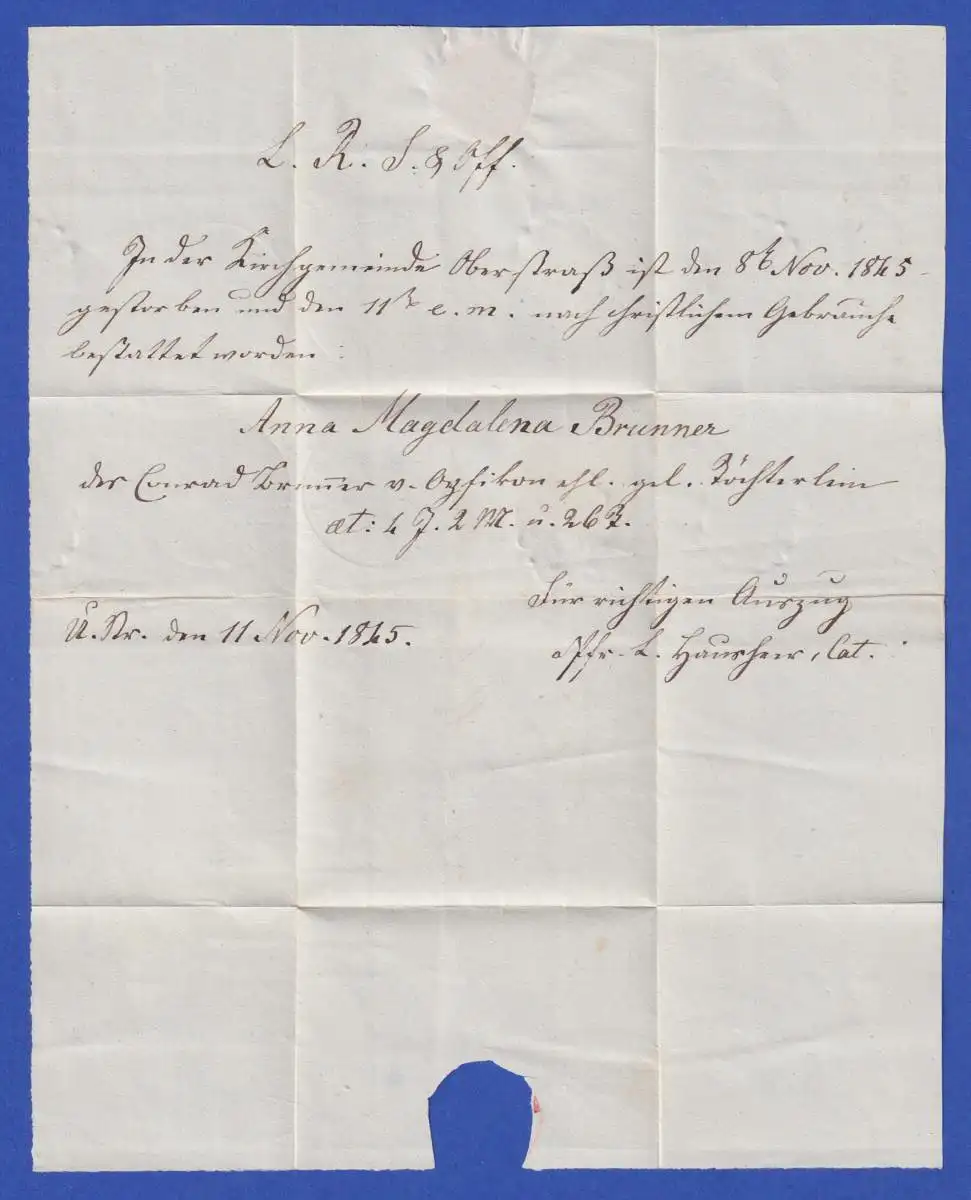 L. R. S. & Off.
In der Kirchgemeinde Oberstraß ist den 8t Nov. 1845
gestorben und den 11t e. m. nach christlichem Gebrauche
bestattet worden:
Anna Magdalena Brunner
des Conrad Brunner v. Opfikon ehl. gel. Töchterlein
æt: 4 J. 2 M. u. 26 T.
Für richtigen Auszug
U. Str. den 11 Nov. 1845.
Pfr. L. Hausheer, Cat.